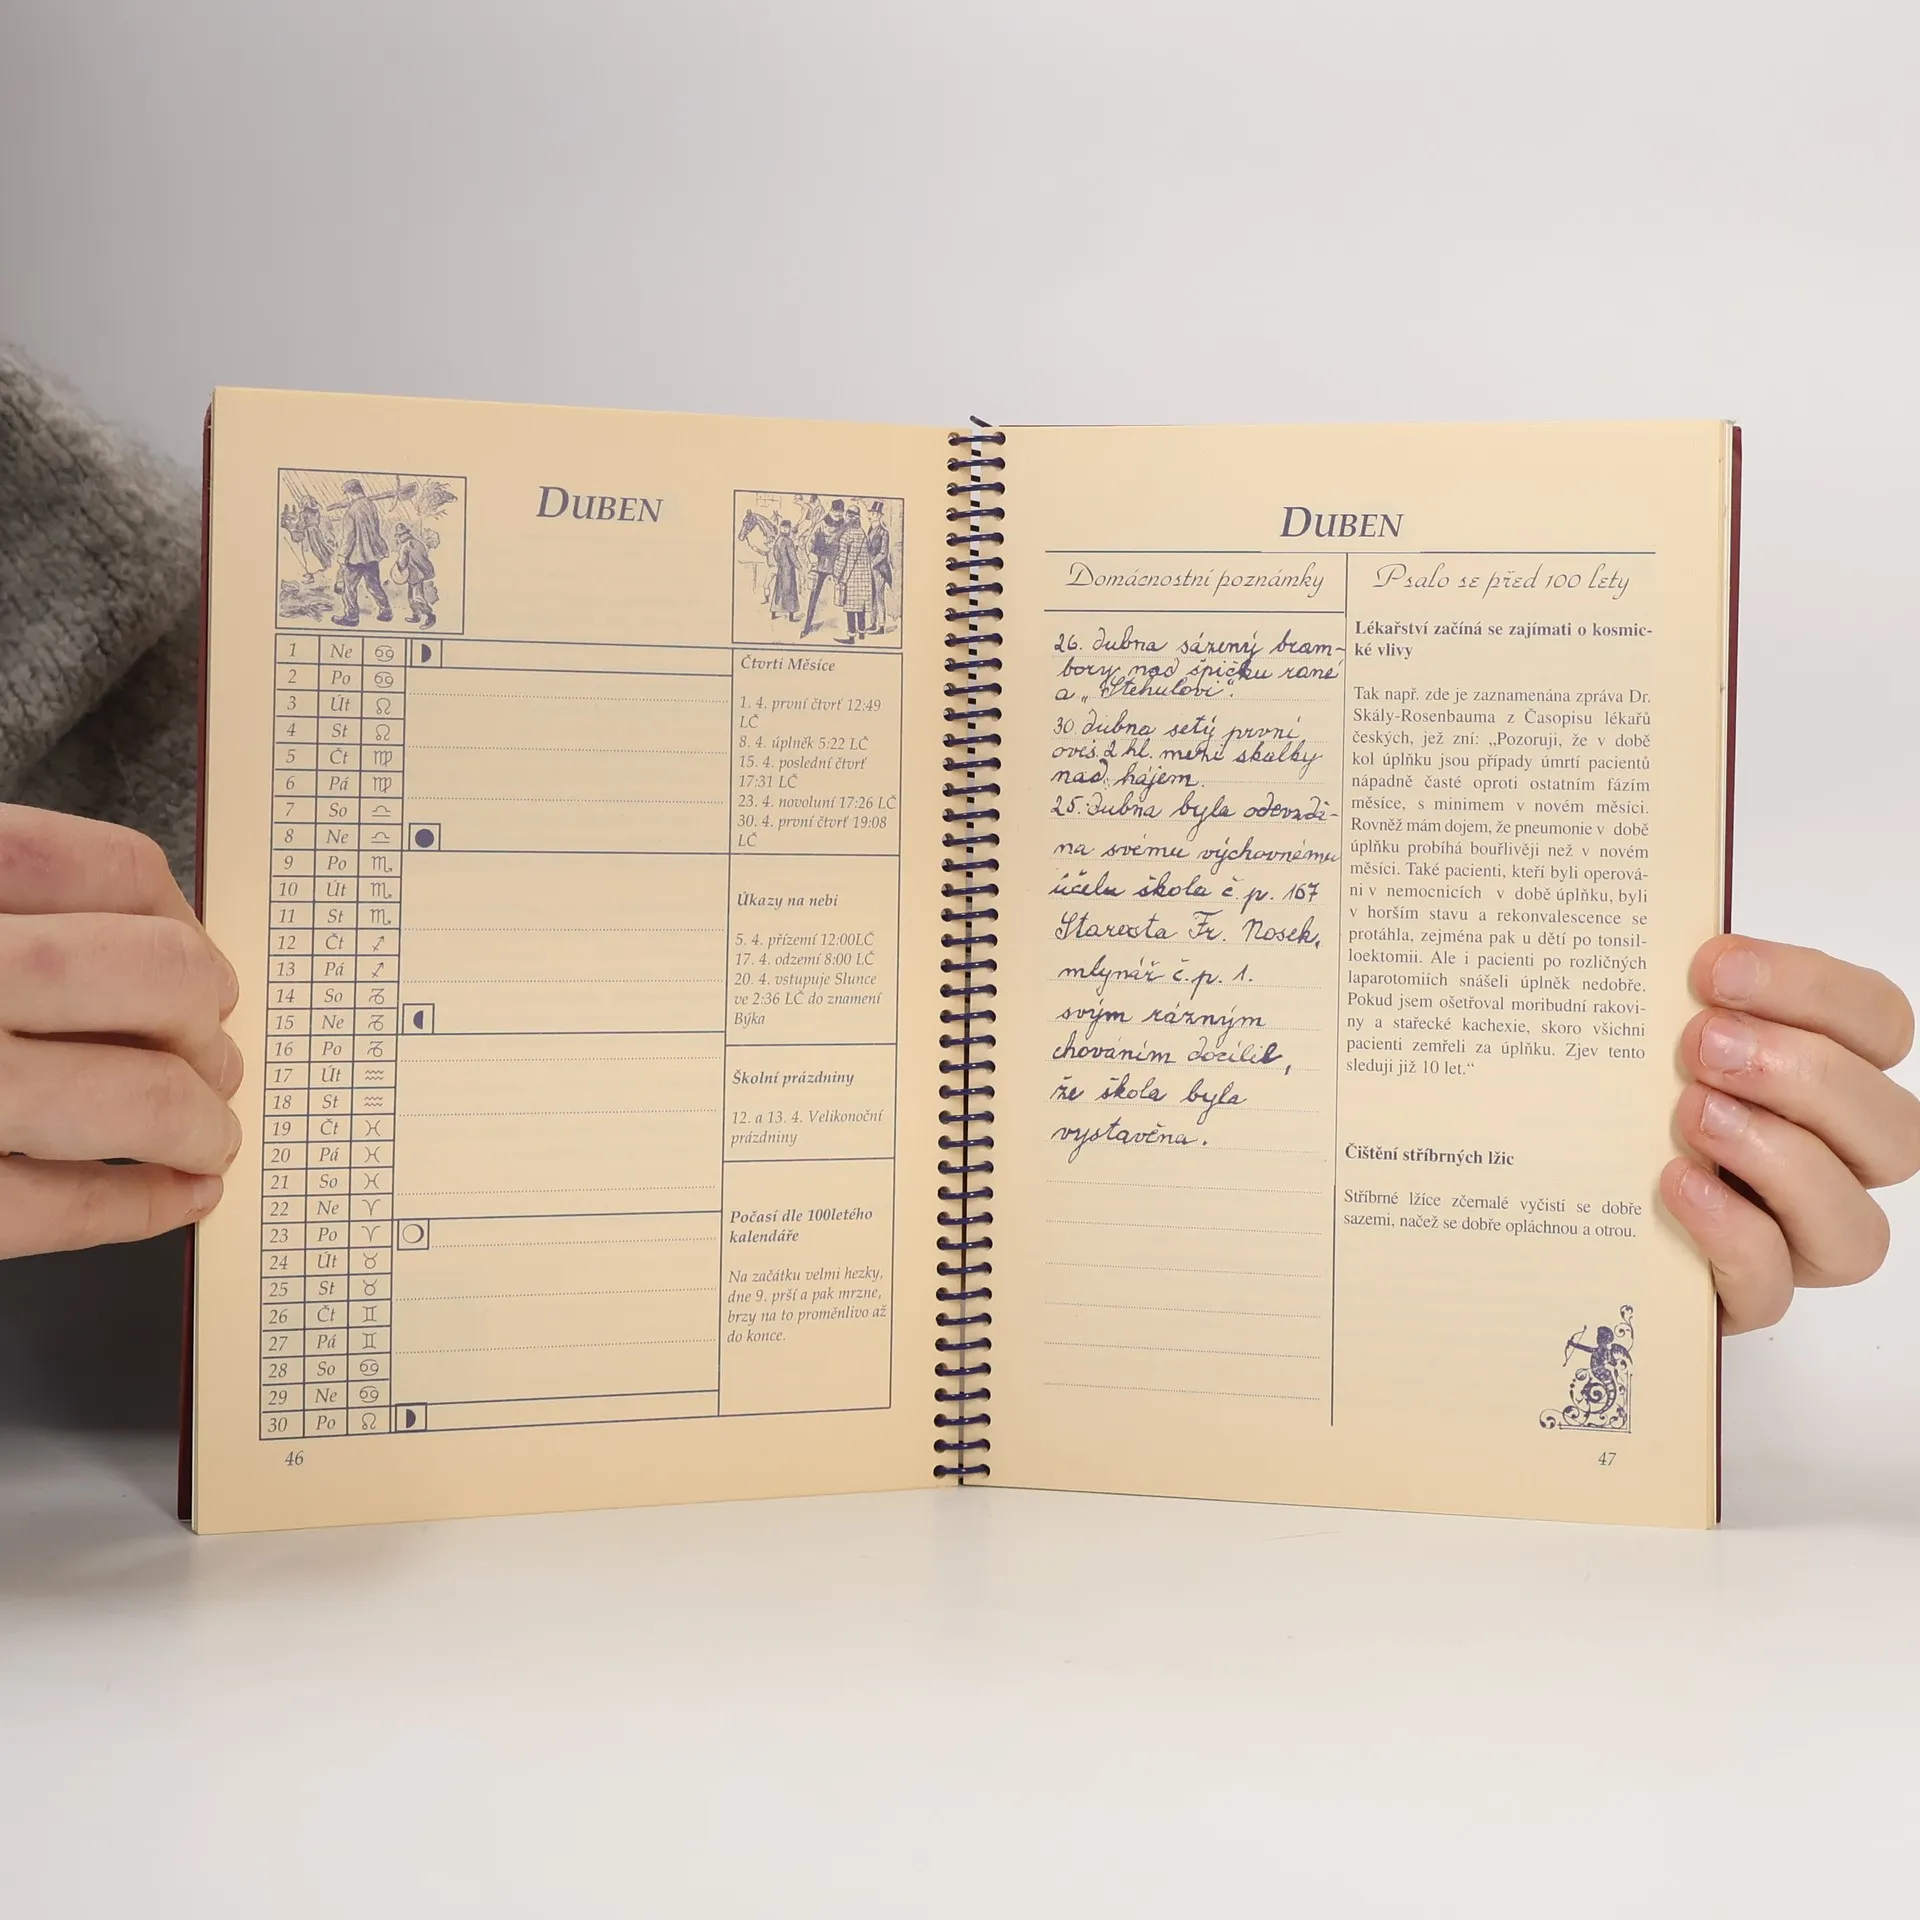 DUBEN
1 Ne
2 Po
3 Út
4 St
5 Čt
6 Pá
7 So
8 Ne
9 Po
10 Út
11 St
12 Čt
13 Pá
14 So
15 Ne
16 Po
17 Út
18 St
19 Čt
20 Pá
21 So
22 Ne
23 Po
24 Út
25 St
26 Čt
27 Pá
28 So
29 Ne
30 Po
Čtvrti Měsíce
1. 4. první čtvrť 12:49
LČ
8. 4. úplněk 5:22 LČ
15. 4. poslední čtvrť
17:31 LČ
23. 4. novoluní 17:26 LČ
30. 4. první čtvrť 19:08
LČ
Úkazy na nebi
5. 4. přízemí 12:00LČ
17. 4. odzemí 8:00 LČ
20. 4. vstupuje Slunce
ve 2:36 LČ do znamení
Býka
Školní prázdniny
12. a 13. 4. Velikonoční
prázdniny
Počasí dle 100letého
kalendáře
Na začátku velmi hezky,
dne 9. prší a pak mrzne,
brzy na to proměnlivo až
do konce.
46
DUBEN
Domácnostní poznámky
26. dubna sázený bram-
bory nad špičku rané
a „Stehulovi".
30. dubna setý první
oves. 2 hl. mezi skalky
nad hájem.
25. dubna byla odevzdá-
na svému výchovnému
účelu škola č. p. 167
Starosta Fr. Nosek,
mlynář č. p. 1.
svým rázným
chováním docílil,
že škola byla
vystavěna.
Psalo se před 100 lety
Lékařství začíná se zajímati o kosmic-
ké vlivy
Tak např. zde je zaznamenána zpráva Dr.
Skály-Rosenbauma z Časopisu lékařů
českých, jež zní: „Pozoruji, že v době
kol úplňku jsou případy úmrtí pacientů
nápadně časté oproti ostatním fázím
měsíce, s minimem v novém měsíci.
Rovněž mám dojem, že pneumonie v době
úplňku probíhá bouřlivěji než v novém
měsíci. Také pacienti, kteří byli operová-
ni v nemocnicích v době úplňku, byli
v horším stavu a rekonvalescence se
protáhla, zejména pak u dětí po tonsil-
loektomii. Ale i pacienti po rozličných
laparotomiích snášeli úplněk nedobře.
Pokud jsem ošetřoval moribudní rakovi-
ny a stařecké kachexie, skoro všichni
pacienti zemřeli za úplňku. Zjev tento
sleduji již 10 let.“
Čištění stříbrných lžic
Stříbrné lžíce zčernalé vyčistí se dobře
sazemi, načež se dobře opláchnou a otrou.
47